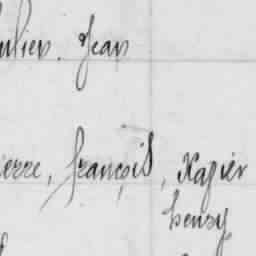 ulien. Jean
ierre, françois, Xavier
henry